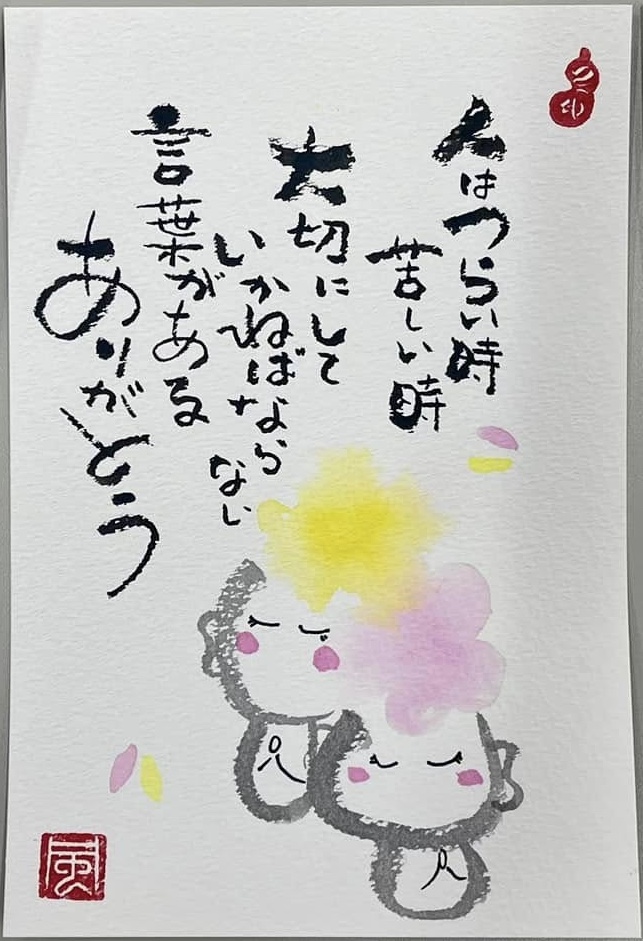 人はつらい時
苦しい時
大切にして
いかねばなら
ない
言葉がある
ありがとう
風